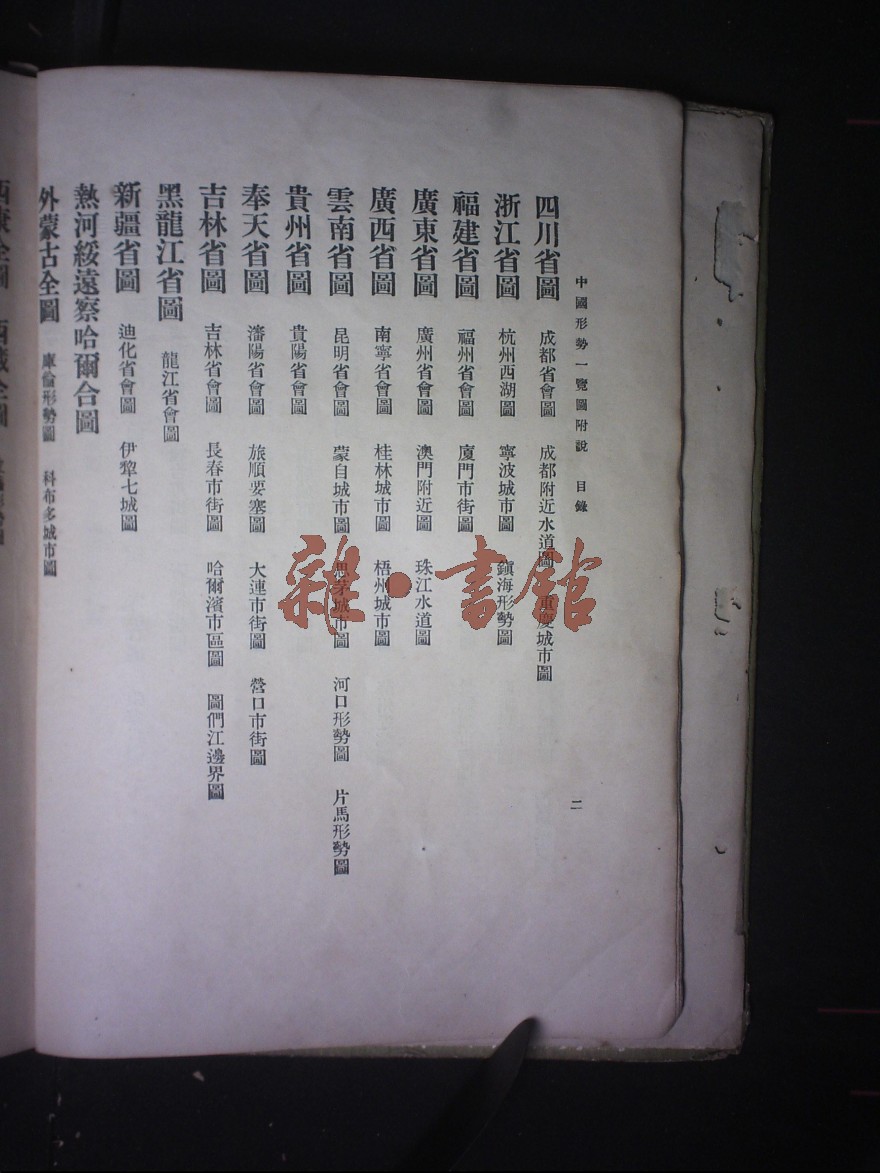 中國形勢一覽圖附說 目錄 二
四川省圖 成都省會圖 成都附近水道圖 重慶城市圖
浙江省圖 杭州西湖圖 寧波城市圖 鎮海形勢圖
福建省圖 福州省會圖 廈門市街圖
廣東省圖 廣州省會圖 澳門附近圖 珠江水道圖
廣西省圖 南寧省會圖 桂林城市圖 梧州城市圖
雲南省圖 昆明省會圖 蒙自城市圖 思茅城市圖 河口形勢圖 片馬形勢圖
貴州省圖 貴陽省會圖
奉天省圖 瀋陽省會圖 旅順要塞圖 大連市街圖 營口市街圖
吉林省圖 吉林省會圖 長春市街圖 哈爾濱市區圖 圖們江邊界圖
黑龍江省圖 龍江省會圖
新疆省圖 迪化省會圖 伊犂七城圖
熱河綏遠察哈爾合圖
外蒙古全圖 庫倫形勢圖 科布多城市圖
西康全圖 西藏全圖
雜·書館